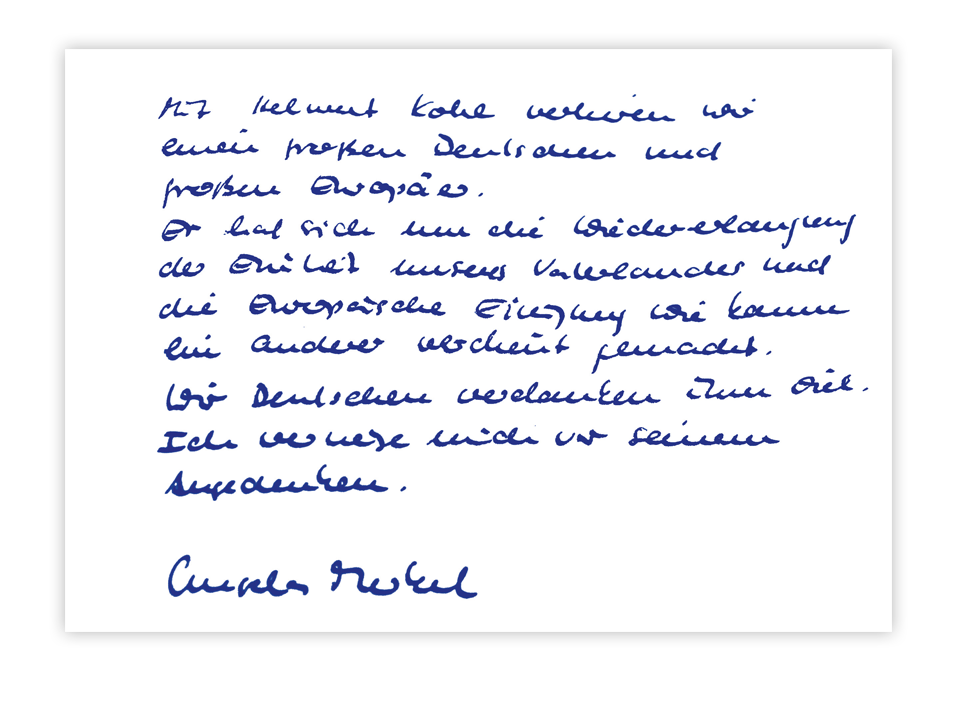 Mit Helmut Kohl verlieren wir
einen großen Deutschen und
großen Europäer.
Er hat sich um die Wiedererlangung
der Einheit unseres Vaterlandes und
die Europäische Einigung wie kaum
ein anderer verdient gemacht.
Wir Deutschen verdanken ihm viel.
Ich verneige mich vor seinem
Angedenken.
Angela Merkel